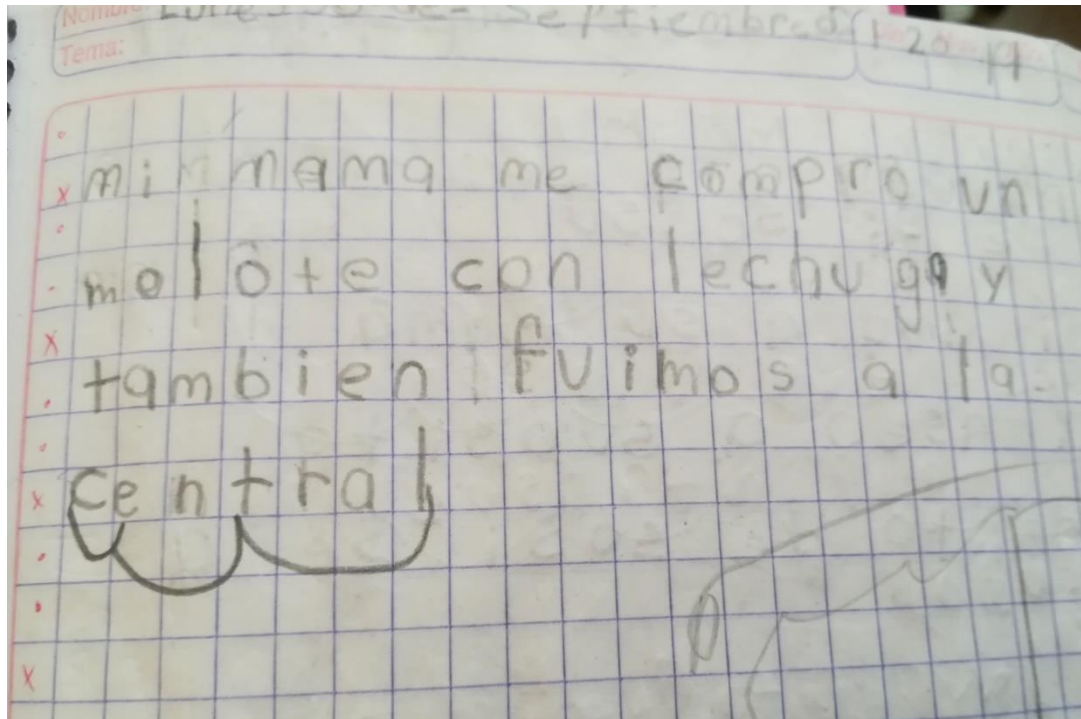 Nombre: Lunes 30 de Septiembre de 2019
Tema:
mi mama me compro un
molote con lechuga y
tambien fuimos a la
central